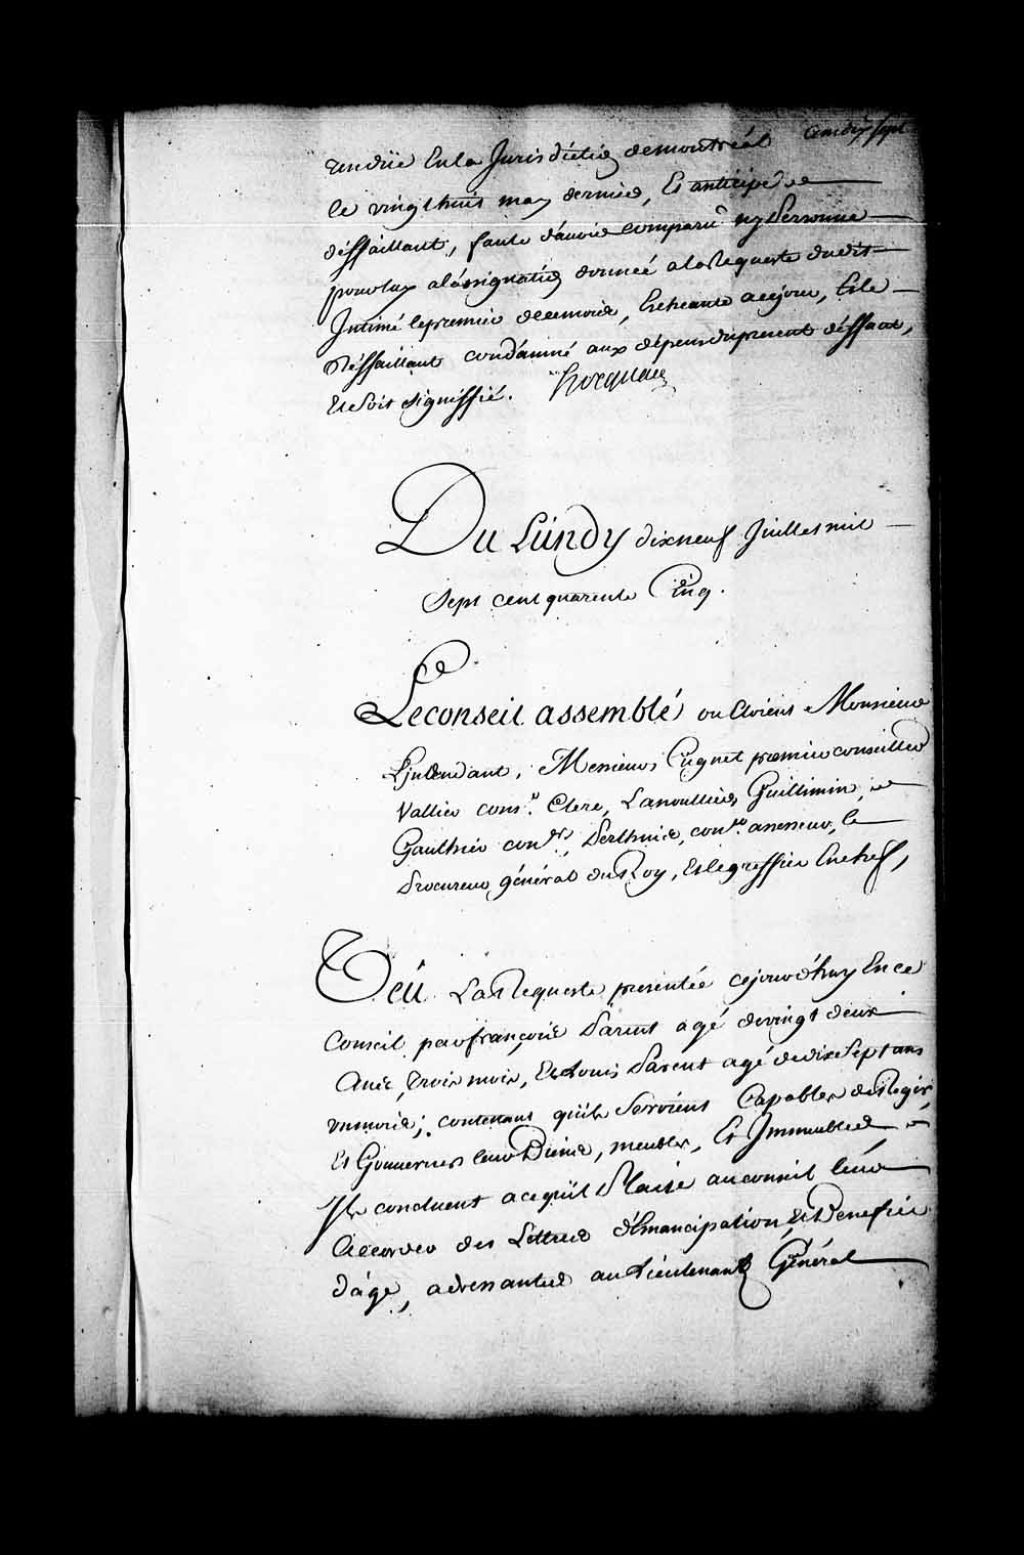 Cent dix sept
rendüe En la Jurisdiction de montréal
le vingt huit may dernier, Et anticipé de
déffaillant, faute d'avoir comparu ny Personne
pour luy a l'assignation donneé a la Requeste dudit
Intimé le premier de ce mois, Echeante a ce jour, Et le
Déffaillant condamné aux dépens du present déffaut,
Et soit signiffié. Hocquart
Du Lundy dix neuf Juillet mil
Sept cent quarente Cinq.
Le conseil assemblé ou Etoient Monsieur
L'jntendant, Messieurs Cugnet premier conseiller
Vallier cons.er Clerc, Lanoullier, Guillimin, et
Gaultier con.ers, Berthier, con.er assesseur, le
Procureur général du Roy, Et le greffier En chef,
Veü La Requeste presentée ce jourd'huy En ce
Conseil par françois Parent agé de vingt deux
Ans, trois mois, Et Louis Parent agé de dix sept ans
un mois; contenant qu'ils Seroient Capables de Regir
Et Gouverner leurs Biens, meubles, Et Immeubles,
Ils concluent a ce qu'il Plaise au conseil leur
Accorder des Lettres d'Emancipation, Et Benefice
d'âge, adressantes au Lieutenant Général